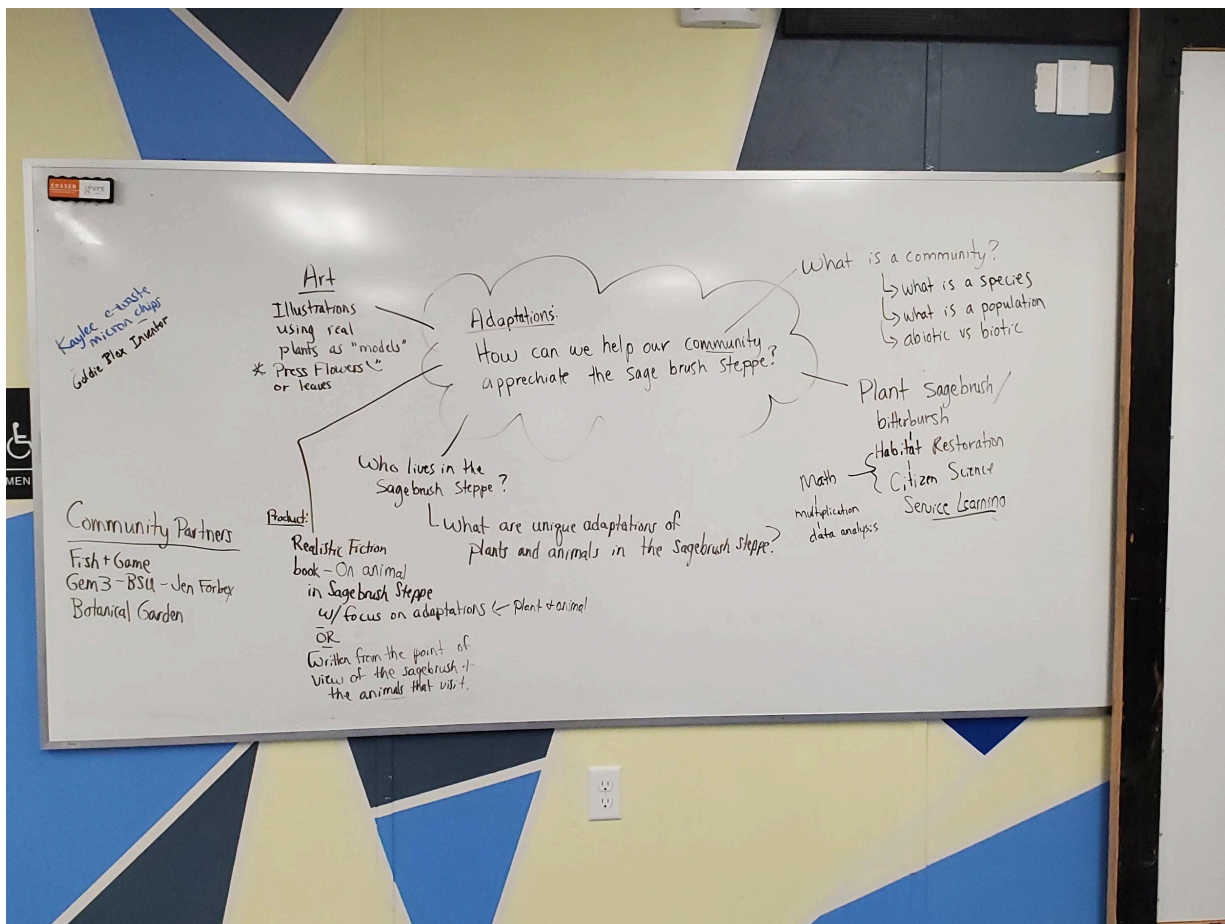 ERASER
Kaylee e-waste
micron chips
Goldie Blox Inventor
Art
Illustrations
using real
plants as "models"
* Press Flowers
or leaves
Adaptations:
How can we help our community
apprechiate the sage brush steppe?
What is a community?
what is a species
what is a population
abiotic vs biotic
Plant Sagebrush/
bitterbursh
Habitat Restoration
Citizen Science
Service Learning
Math
multiplication
data analysis
Who lives in the
Sagebrush Steppe?
What are unique adaptations of
plants and animals in the Sagebrush Steppe?
Product:
Realistic Fiction
book - On animal
in Sagebrush Steppe
w/ focus on adaptations ← Plant + animal
OR
Written from the point of
view of the sagebrush +
the animals that visit.
Community Partners
Fish + Game
Gem3 - BSU - Jen Forbey
Botanical Garden
MEN